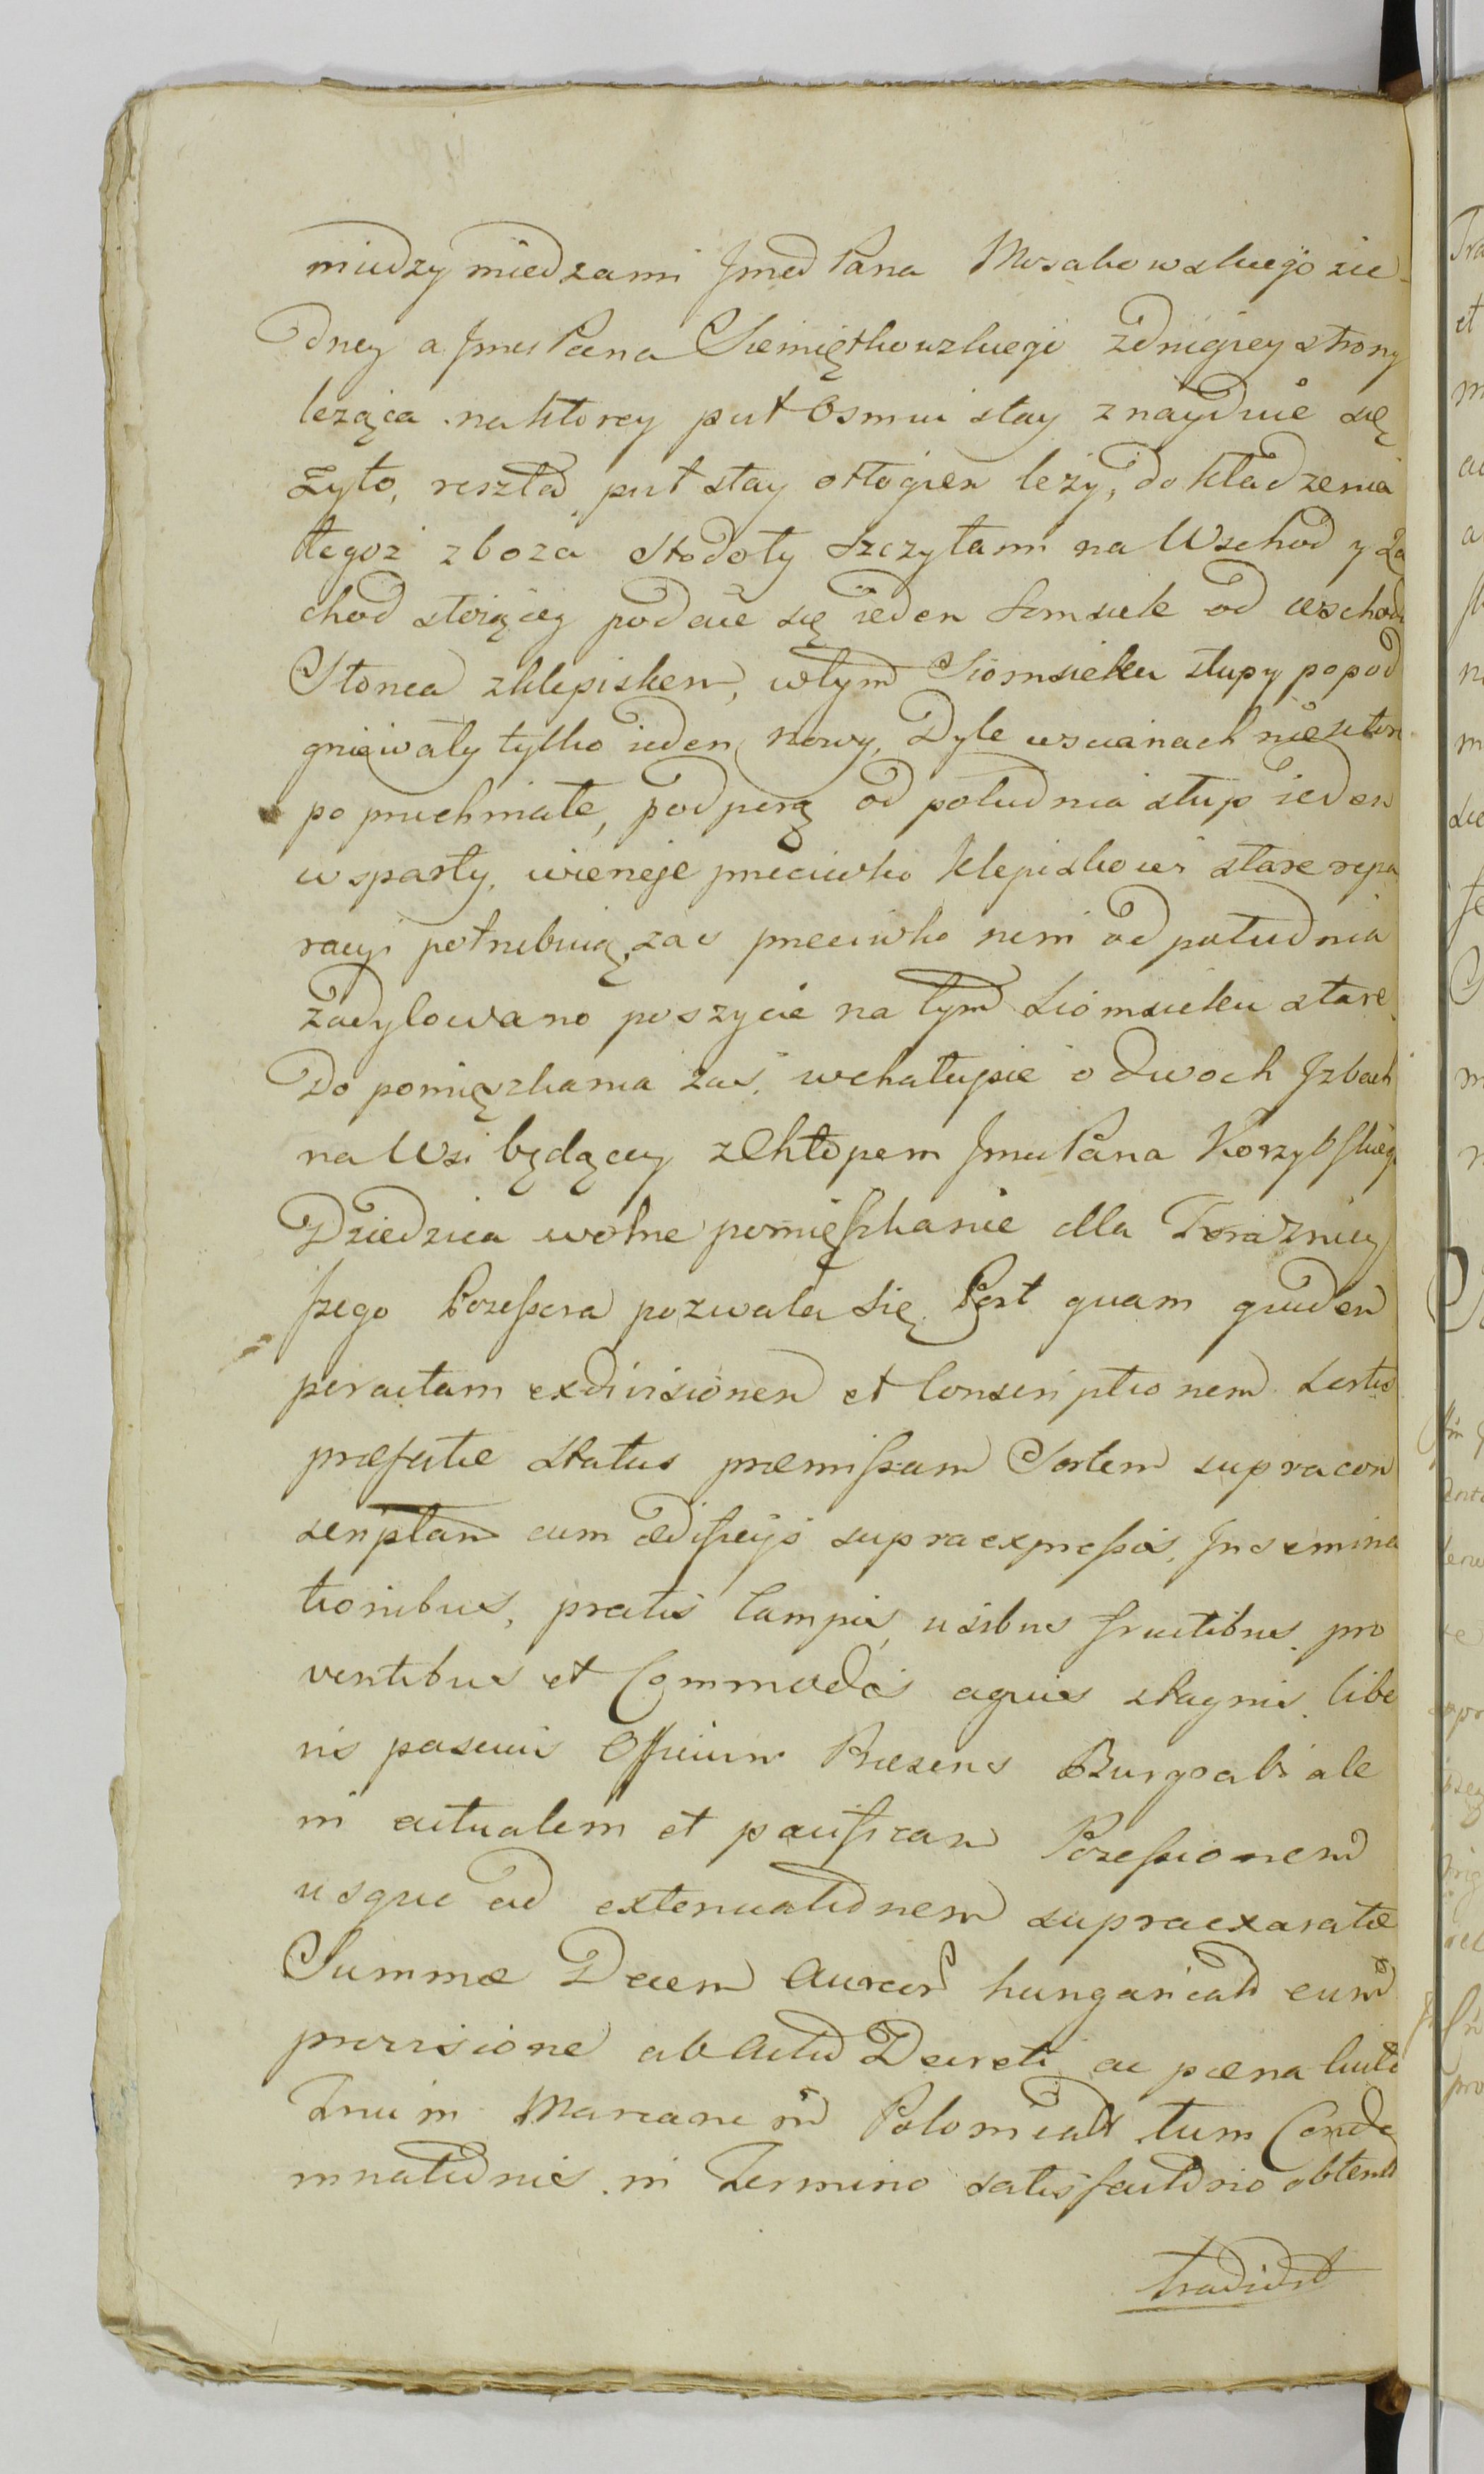 miudzy miedzami Jmed Pana Mosakowskiego zie-
dney a Jmci Pana Siemiętkowskiego zdrugiey strony
leząca na ktorey puł osmu stay znayduie się
Zyto, reszta puł stay odłogiem leży, do kładzenia
tegoż zboza stodoły szczytami na Wschod y Za
chod stoiącey podaie się ieden somsiek od wschodu
Słonca zklepiskem, wtym Siomsieku słupy popod
gniwały tylko ieden nowy, Dyle wscianach niektore
popruchniałe, podperą od południa słup ieden
wsparty, wieneje przeciwko klepiskowi stare repa
racyi potrzebuią, zas przeciwko nim od południa
zadylowano poszycie na tym siomsieku stare.
Do pomięszkania zas, wchałupie o dwoch Jzbach
na Wsi będącey zChłopem Jmci Pana Korzybskieg
Dziedzica wolne pomięszkanie dla Terazniey
szego Possessora pozwala się. Post quam quidem
peractam exdivisionem et Conscriptionem sortis
præfatæ status præmissam Sortem supracon
scriptam cum ædificijs supraexpressis, Insemina
tionibus, pratis Campis, usibus fructibus pro
ventibus et Commodis aquis stagnis libe
ris pascuis Officium Præsens Burgrabiale
in actualem et pacificam Possessionem
usque ad extenuationem supraexaratæ
Summæ Decem Aureor hungarical cum
provisione ab Actu Decreti ac pæna luito
rum in Marcarum Polonical tum Conde
mnationis in Termino satisfactorio obtent
tradidit